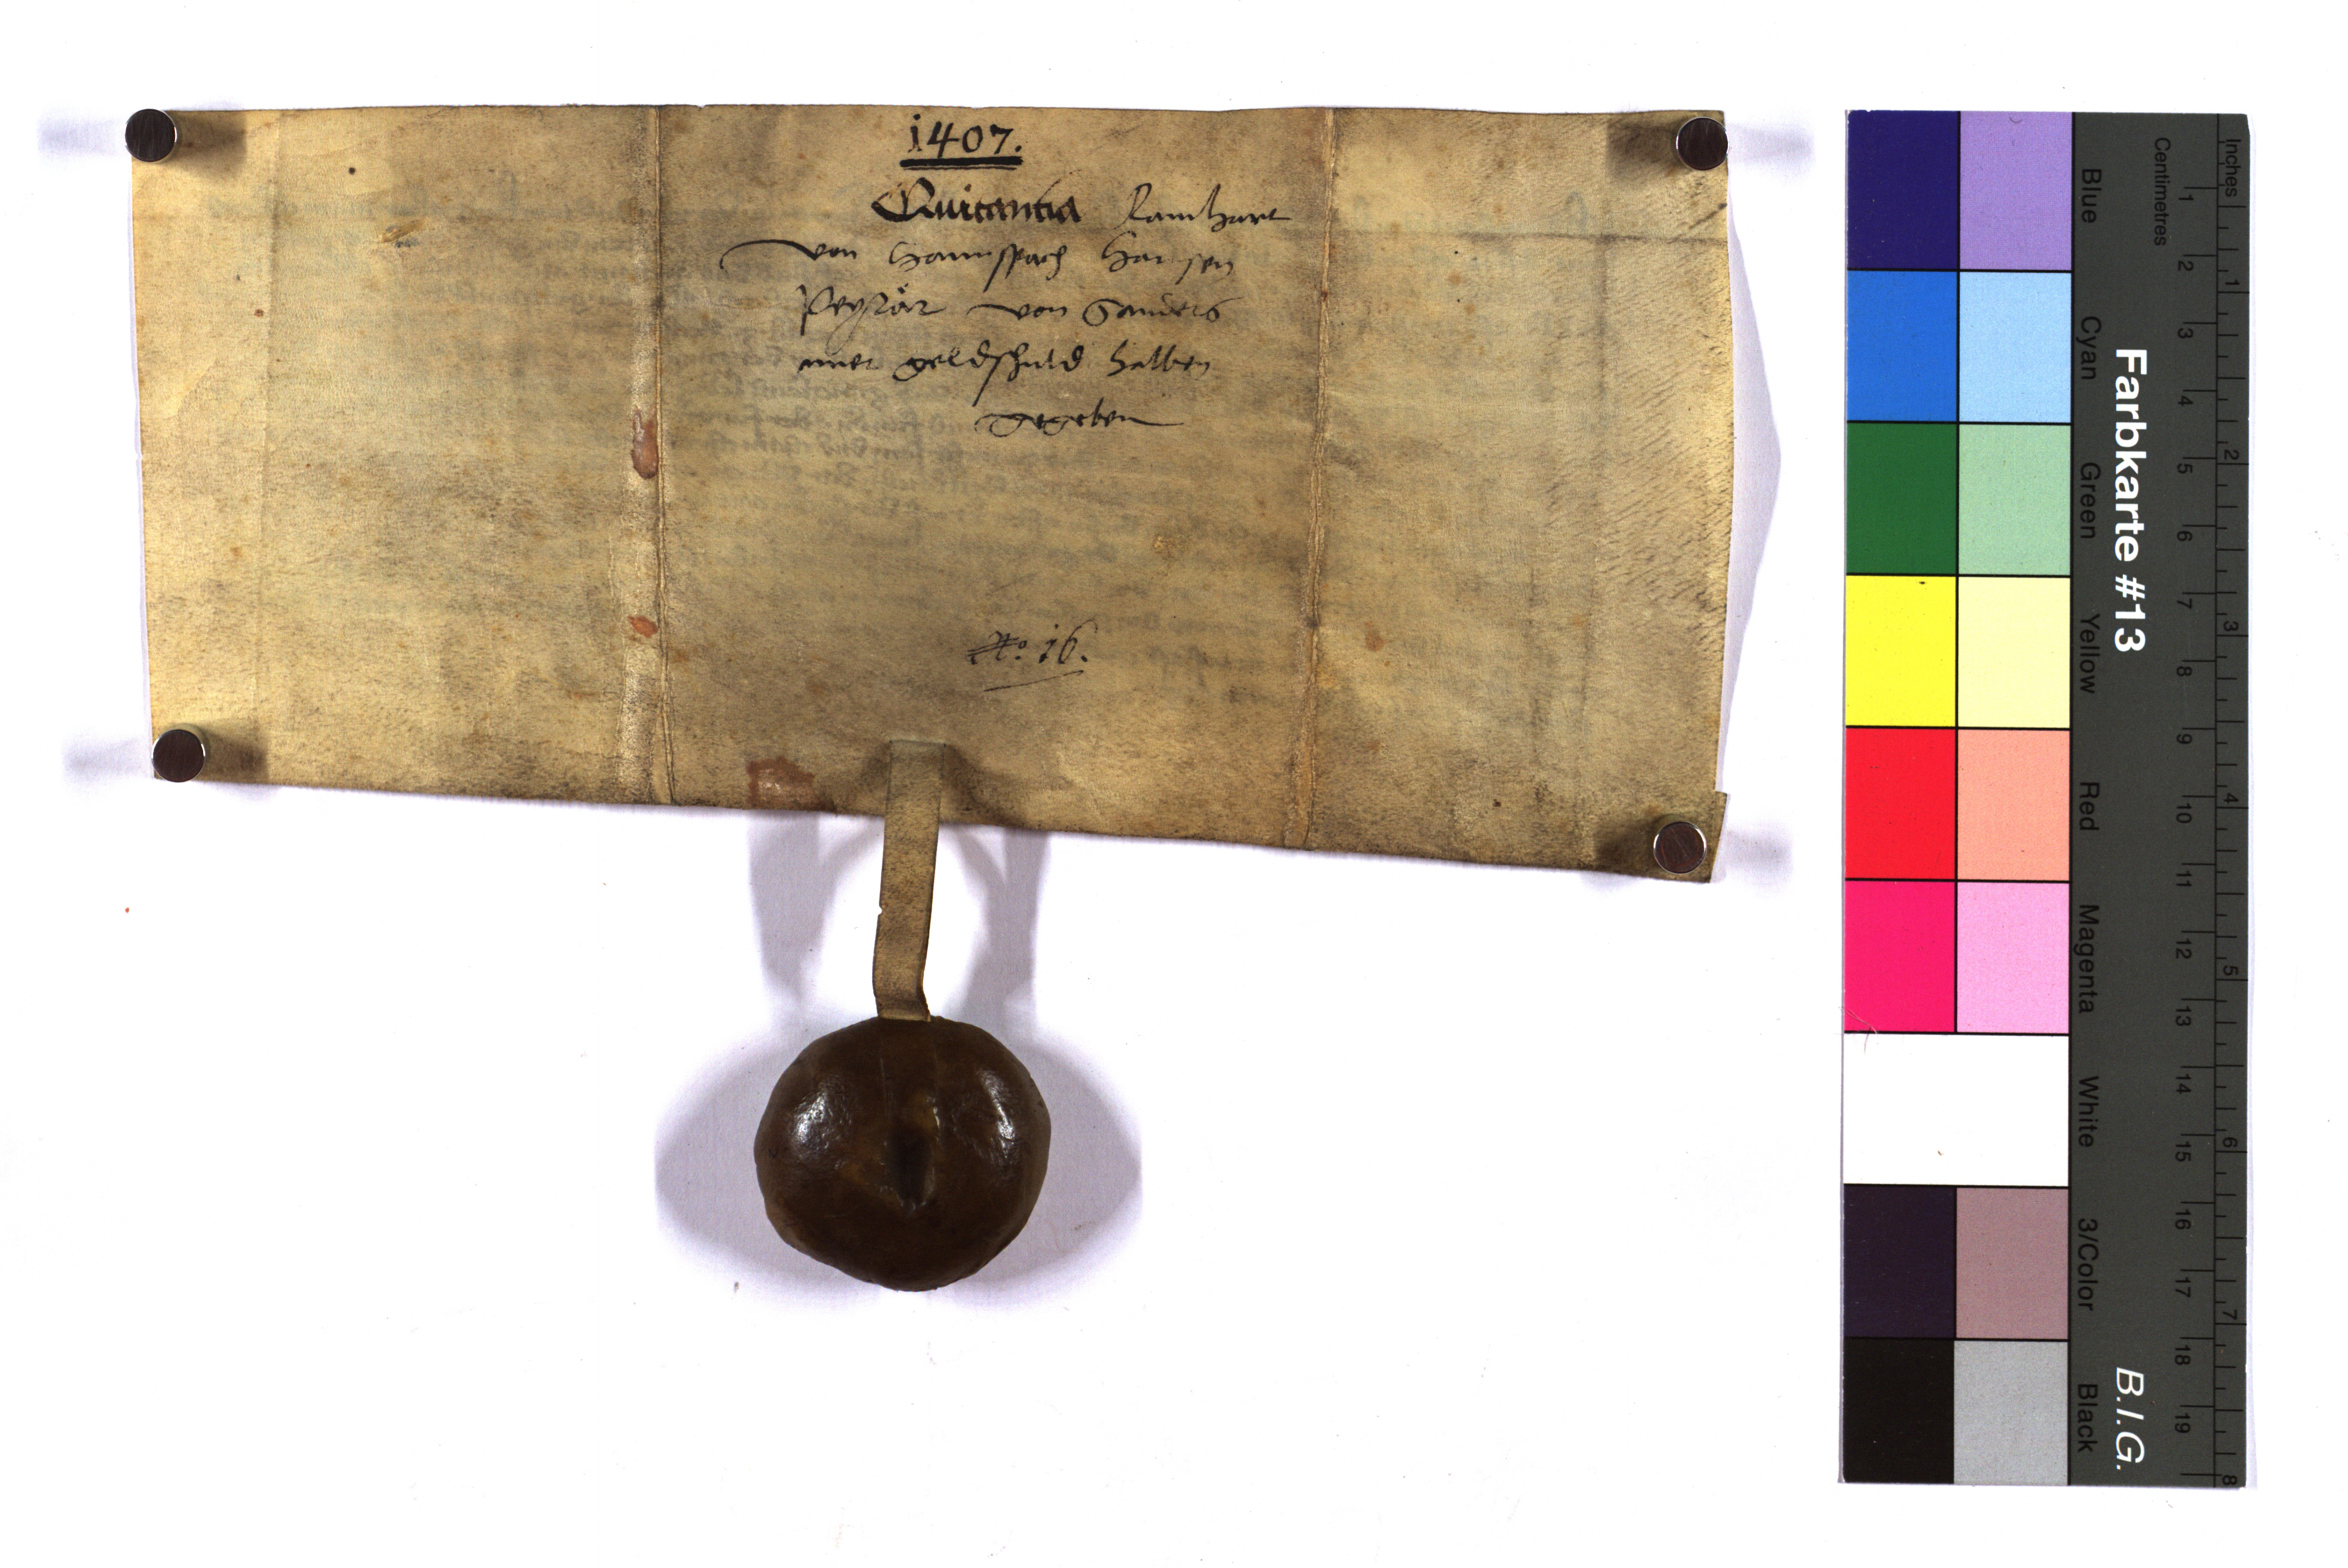 1407.
Quitantia Lamhart
von Hannspach Hansen
Peyrär von Sanders
einer geldschuld halben
gegeben
No. 16.
Farbkarte #13
B.I.G.
Blue
Cyan
Green
Yellow
Red
Magenta
White
3/Color
Black
Centimetres
1 2 3 4 5 6 7 8 9 10 11 12 13 14 15 16 17 18 19
Inches
1 2 3 4 5 6 7 8